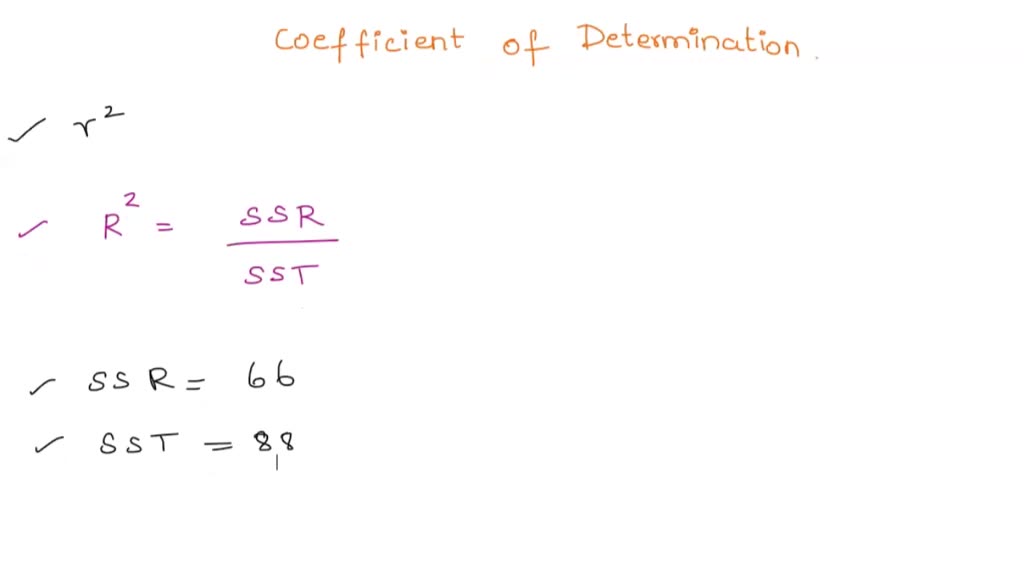 Coefficient of Determination.
✓ r²
✓ R² = SSR / SST
✓ SSR = 66
✓ SST = 88